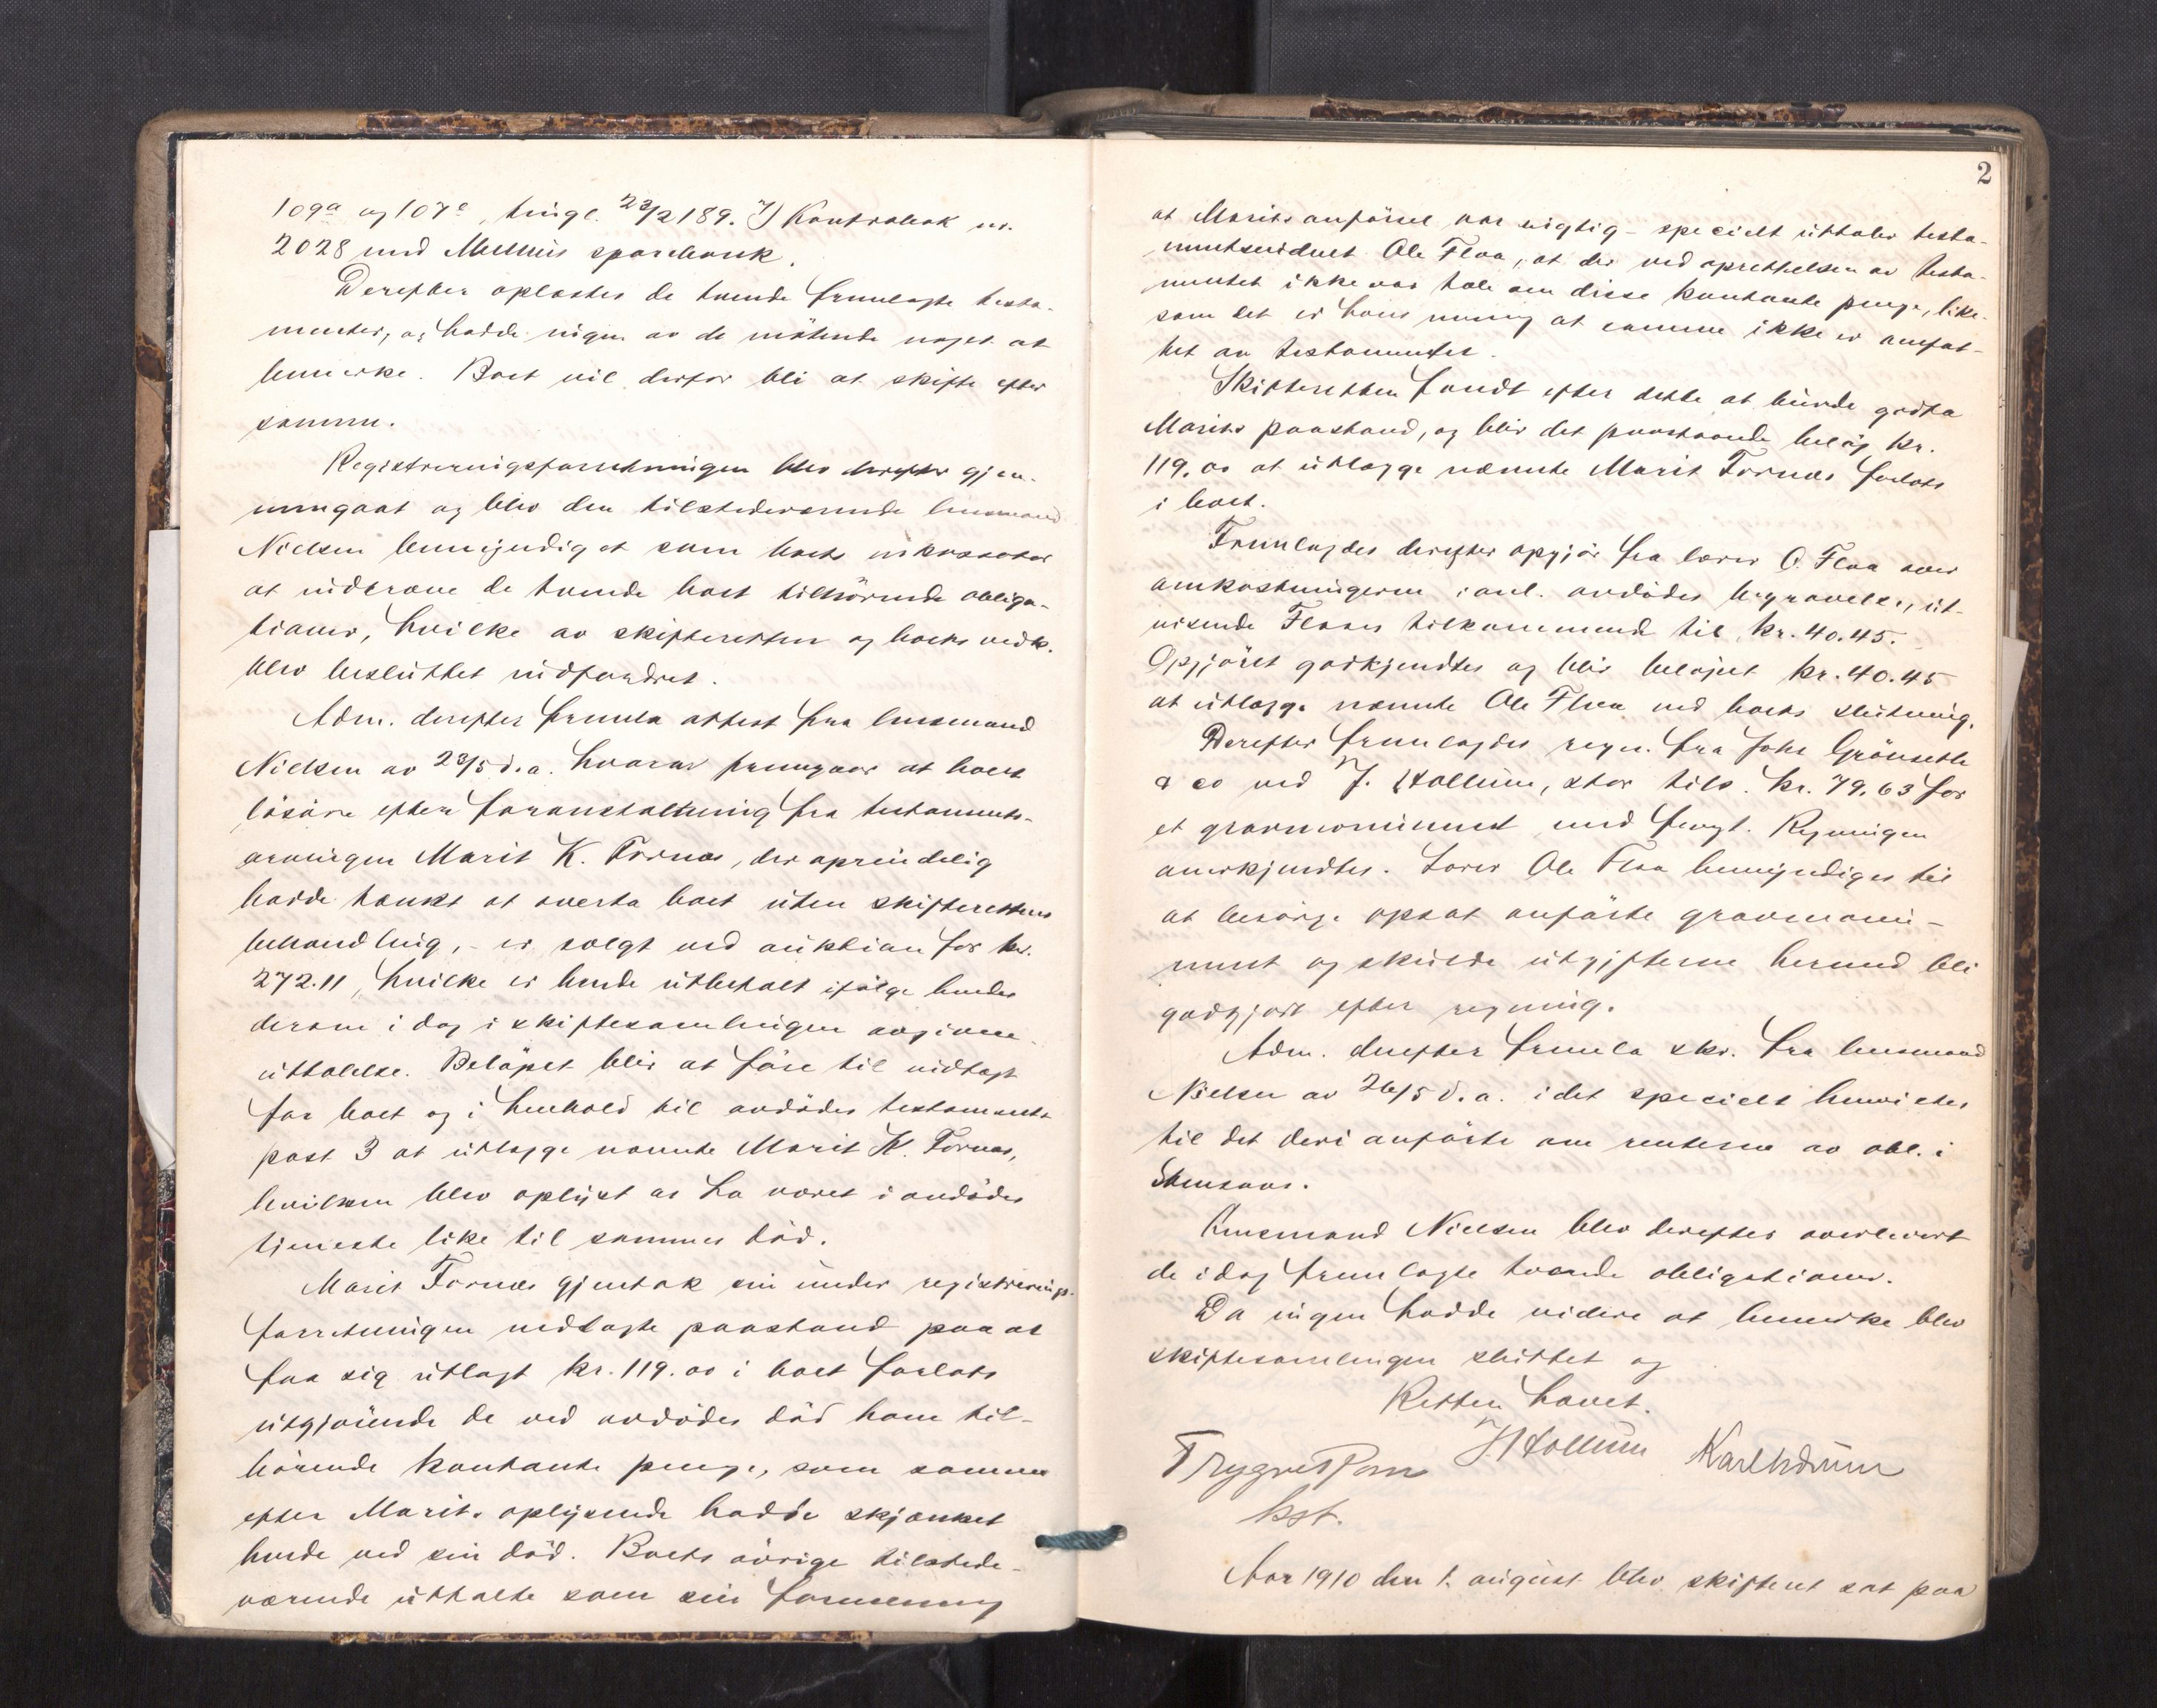 109a og 107e, tingl. 23/2 189. 7) Kontrabok nr.
2028 med Melhus sparebank.
Derefter oplæstes de tvende fremlagte testa-
menter, og hadde ingen av de mötende noget at
bemerke. Boet vil derfor bli at skifte efter
samme.
Registreringsforretningen blev derefter gjen-
nemgaat og blev den tilstedeværende lensmand
Nielsen bemyndiget som boets inkassator
at inddrive de tvende boet tilhörende obliga-
tioner, hvilke av skifteretten og boets vedk.
blev besluttet indfordret.
Adm. derefter fremla attest fra lensmand
Nielsen av 23/5 d.a. hvorav fremgaar at boets
lösöre efter foranstaltning fra testaments-
arvingen Marit K. Tornæs, der oprindelig
hadde tænkt at overta boet uten skifterettens
behandling, - er solgt ved auktion for kr.
272.11, hvilke er hende utbetalt ifölge hendes
derom i dag i skiftesamlingen avgivne
uttalelse. Belöpet blir at före til indtægt
for boet og i henhold til avdödes testamente
post 3 at utlægge nævnte Marit K. Tornæs,
hvilken blev oplyst at ha været i avdödes
tjeneste like til sammes död.
Marit Tornæs gjentok sin under registrerings-
forretningen nedlagte paastand paa at
faa sig utlagt kr. 119.00 i boet forlods
utgjörende de ved avdödes död ham til-
hörende kontante penge, som samme
efter Marits oplysende hadde skjænket
hende ved sin död. Boets övrige tilstede-
værende uttalte som sin formening
2
at Marits anförsel var rigtig - specielt uttaler testa-
mentsvidnet Ole Flaa, at der ved oprettelsen av testa-
mentet ikke var tale om disse kontante penge, like-
som det er hans mening at samme ikke er omfat-
tet av testamentet.
Skifteretten fandt efter dette at burde godta
Marits paastand, og blir det paastaaende belöp kr.
119.00 at utlægge nævnte Marit Tornæs forlods
i boet.
Fremlagdes derefter opgjör fra lærer O. Flaa over
omkostningerne i anl. avdödes begravelse, ut-
visende Flaaes tilkommende til kr. 40.45.
Opgjöret godkjendtes og blir belöpet kr. 40.45
at utlægge nævnte Ole Flaa ved boets slutning.
Derefter fremlagdes regn. fra Johs Grönseth
& co ved J. Hollum, stor tils. kr. 79.63 for
et gravmonument med fragt. Regningen
anerkjendtes. Lærer Ole Flaa bemyndiges til
at besörge opsat anförte gravmonu-
ment og skulde utgifterne hermed bli
godgjort efter regning.
Adm. derefter fremla skr. fra lensmand
Nielsen av 26/5 d.a. idet specielt henvistes
til det deri anförte om renterne av obl. i
Stensaas.
Lensmand Nielsen blev derefter overlevert
de idag fremlagte tvende obligationer.
Da ingen hadde videre at bemerke blev
skiftesamlingen sluttet og
Retten hævet.
Trygve J. Hollum Karl
kst.
Aar 1910 den 1. august blev skifteret sat paa